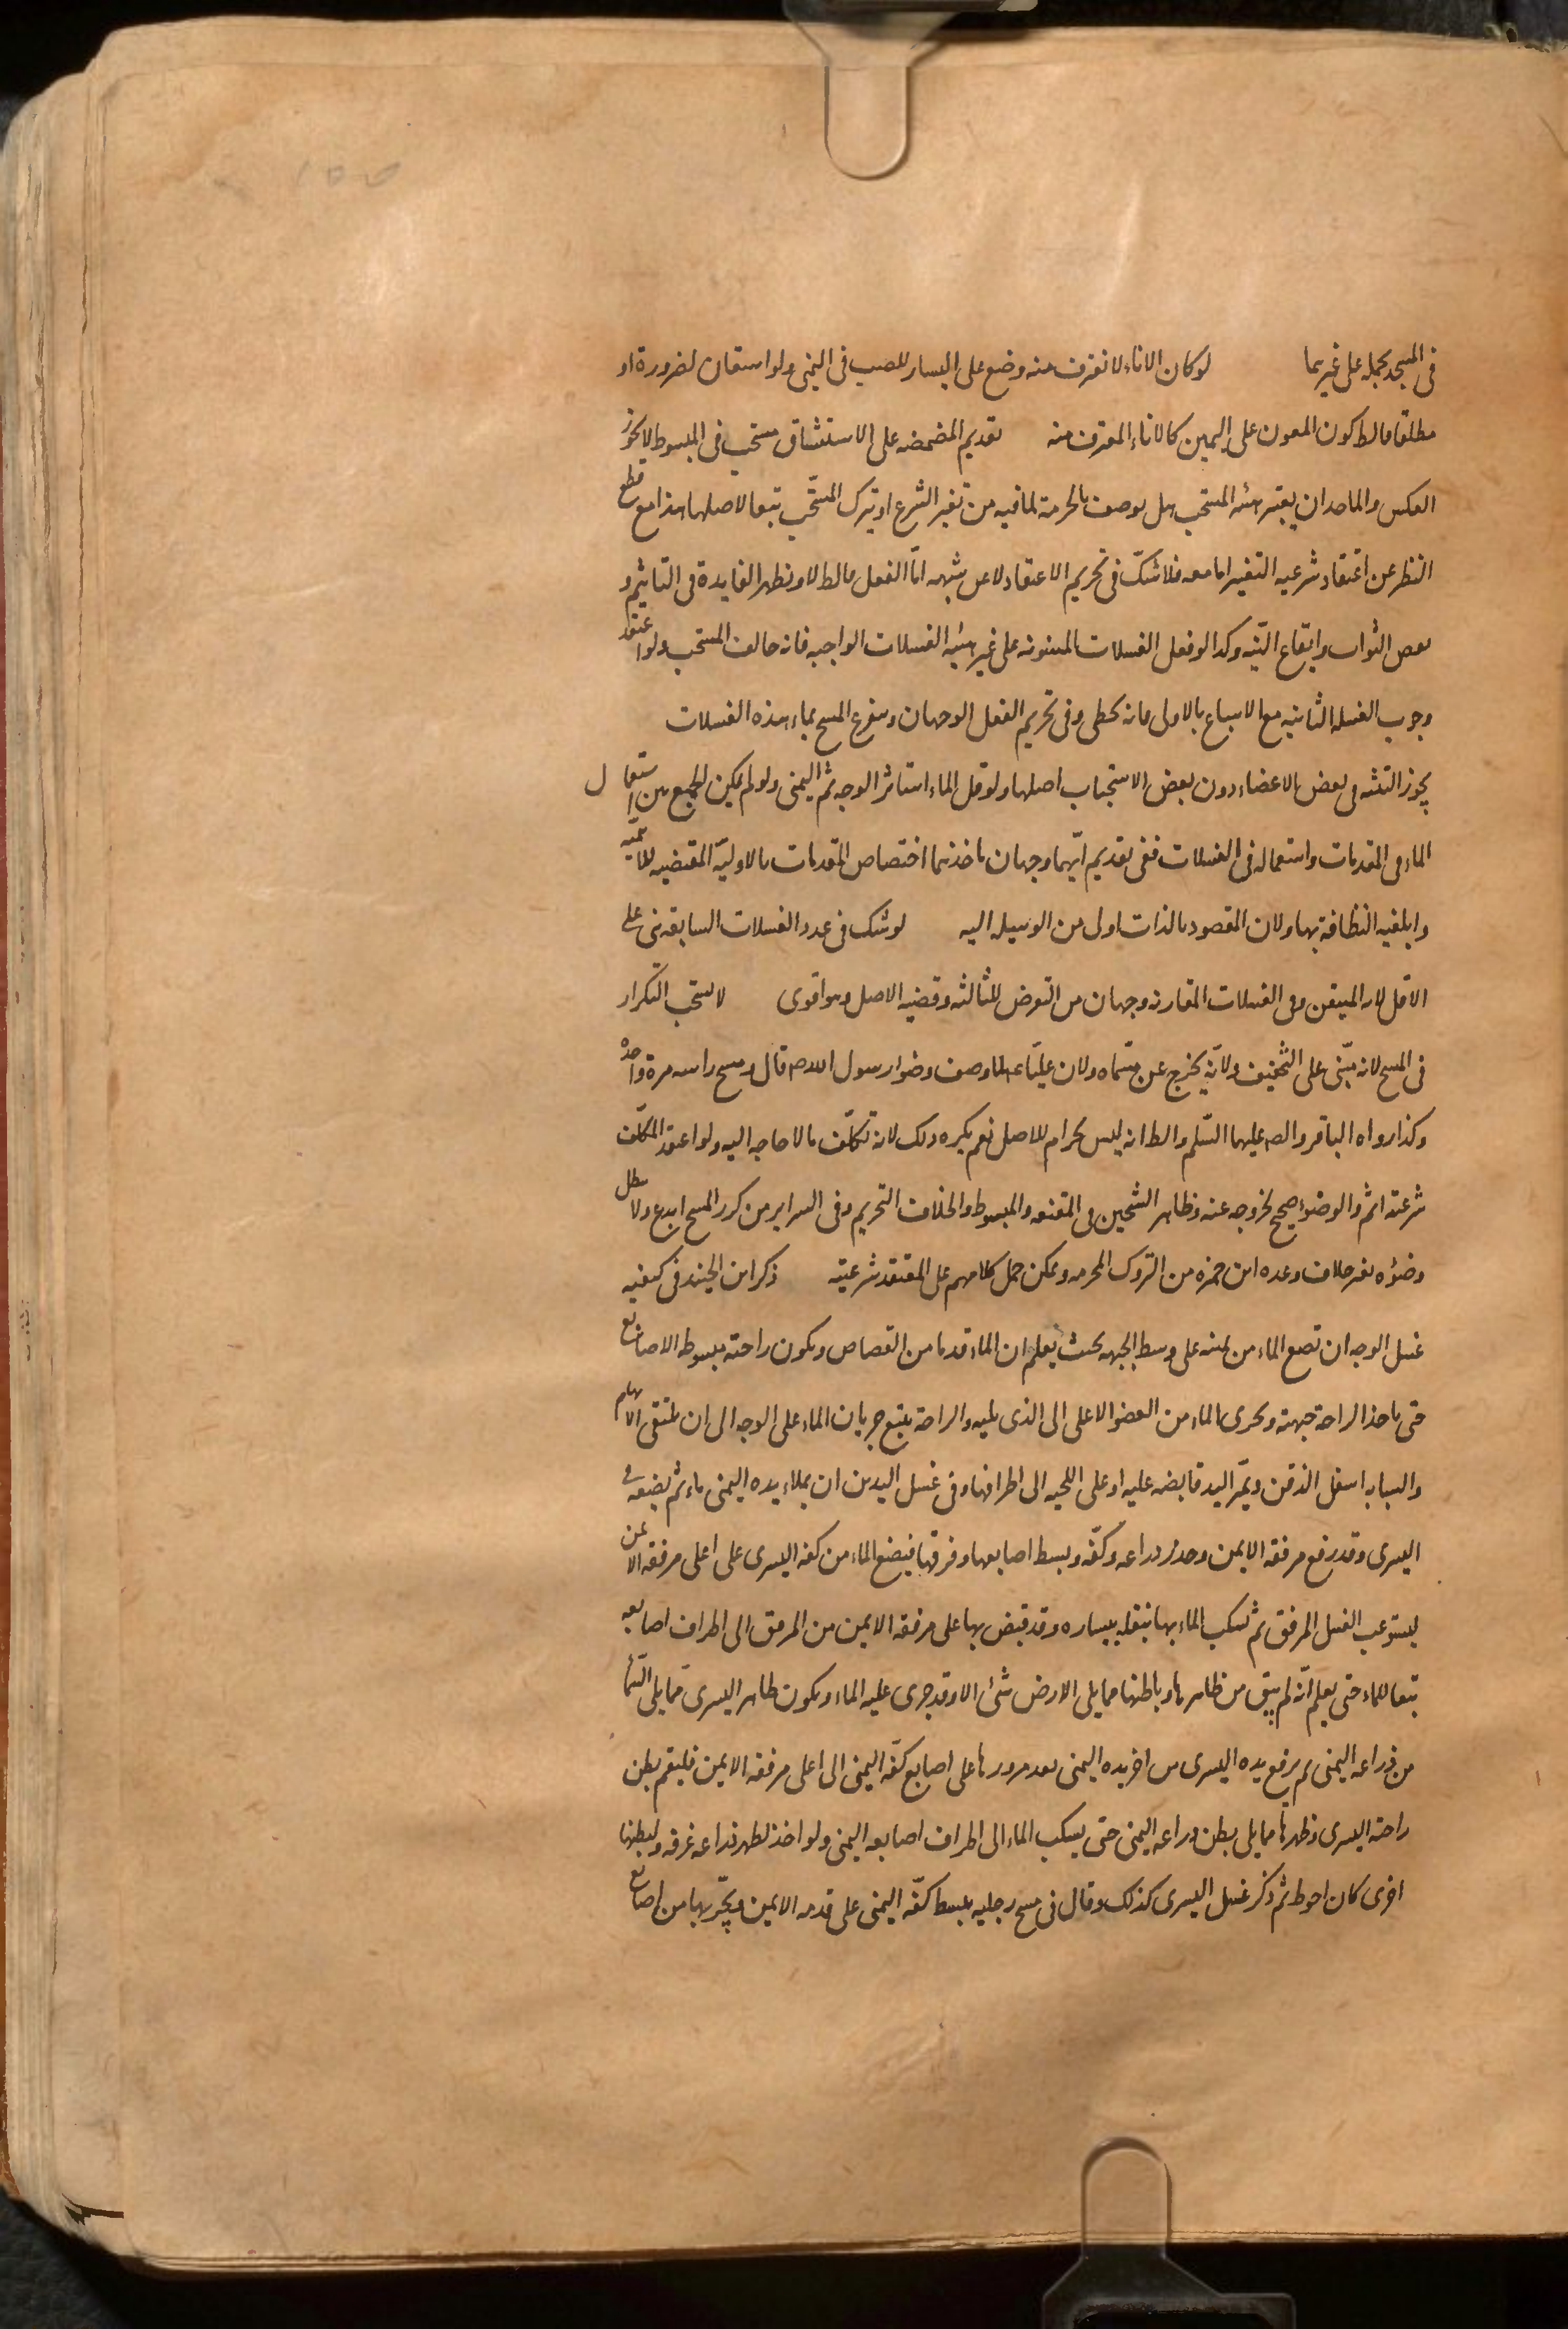 ١٥٥
فى المسجد يحمله على غيرهما لو كان الاناء لا تغترف منه وضع على اليسار للصب فى اليمنى ولو استعان لضرورة او
مطلقا فالط كون المعون على اليمين كالاناء المغترف منه تقديم المضمضه على الاستنشاق مستحب فى المبسوط لا يجوز
العكس والماخذ ان يغير هيئه المستحب هل يوصف بالحرمة لما فيه من تغير الشرع او بترك المستحب تبعا لاصلها هذا مع قطع
النظر عن اعتقاد شرعيه التغير اما معه فلا شك فى تحريم الاعتقاد لا عن شبهه اما الفعل فالط لا وتظهر الفايدة فى التاثيم و
نقص الثواب وايقاع النيه وكذا لو فعل الغسلات المسنونه على غير هيئه الغسلات الواجبه فانه خالف المستحب ولو اعتقد
وجوب الغسله الثانيه مع الاسباغ بالاولى فانه يخطى وفى تحريم الفعل الوجهان ويتفرع المسح بماء هذه الغسلات
يجوز التثنيه فى بعض الاعضاء دون بعض الاستحباب اصلها ولو قل الماء استاثر الوجه ثم اليمنى ولو لم يكن الجمع بين استعمال
الماء فى المقدمات واستعماله فى الغسلات ففى تقديم ايهما وجهان ماخذهما اختصاص المقدمات بالاوليه المقتضيه للاهميه
وابلغيه النظافة بها ولان المقصود بالذات اولى من الوسيله اليه لو شك فى عدد الغسلات السابقه بنى على
الاقل لانه المتيقن وفى الغسلات المقارنه وجهان من التعرض للثالثه وقضيه الاصل وهو اقوى لا يستحب التكرار
فى المسح لانه مبنى على التخفيف ولانه يخرج عن مسماه ولان عليا ع لما وصف وضوا رسول الله ص قال ومسح راسه مرة واحده
وكذا رواه الباقر والص عليهما السلم والط انه ليس بحرام للاصل نعم يكره ذلك لانه تكلف ما لا حاجه اليه ولو اعتقد المكلف
شرعيته اثم والوضوء صحيح لخروجه عنه وظاهر الشيخين فى المقنعه والمبسوط والخلاف التحريم وفى السراير من كرر المسح ابدع ولا يبطل
وضؤه بغير خلاف وعده ابن حمزه من التروك المحرمه ويمكن حمل كلامهم على المعتقد شرعيته ذكر ابن الجنيد فى كيفيه
غسل الوجه ان تضع الماء من يمينه على وسط الجبهه بحيث يعلم ان الماء قد ماس القصاص ويكون راحته مبسوطه الاصابع
حتى ياخذ الراحة جبهته ويجرى الماء من العضو الاعلى الى الذى يليه والراحة يتبع جريان الماء على الوجه الى ان يلتقى الابهام
والسبابه اسفل الذقن ويمر اليد قابضه عليه او على اللحيه الى اطرافها وفى غسل اليدين ان يملاء يده اليمنى ماء ثم يضعه فى
اليسرى وقد رفع مرفقه الايمن وحدر ذراعه وكفه وبسط اصابعها وفرقها فيضع الماء من كفه اليسرى على اعلى مرفقه الايمن
ليستوعب الغسل المرفق ثم يسكب الماء بها بنقله بيساره وقد قبض بها على مرفقه الايمن من المرفق الى اطراف اصابعه
تبعا للماء حتى يعلم انه لم يبق من ظاهرها وباطنها مما يلى الارض شئ الا وقد جرى عليه الماء ويكون ظاهر اليسرى مما يلى السماء
من ذراعه اليمنى ثم يرفع يده اليسرى من اخر يده اليمنى بعد مرورها على اصابع كفه اليمنى الى اعلى مرفقه الايمن فليقم بطن
راحته اليسرى وظهرها مما يلى بطن ذراعه اليمنى حتى يسكب الماء الى اطراف اصابعه اليمنى ولو اخذ لظهر ذراعه غرفه ولبطنها
اخرى كان احوط ثم ذكر غسل اليسرى كذلك وقال فى مسح رجليه يبسط كفه اليمنى على قدمه الايمن ويجر بها من اصابع